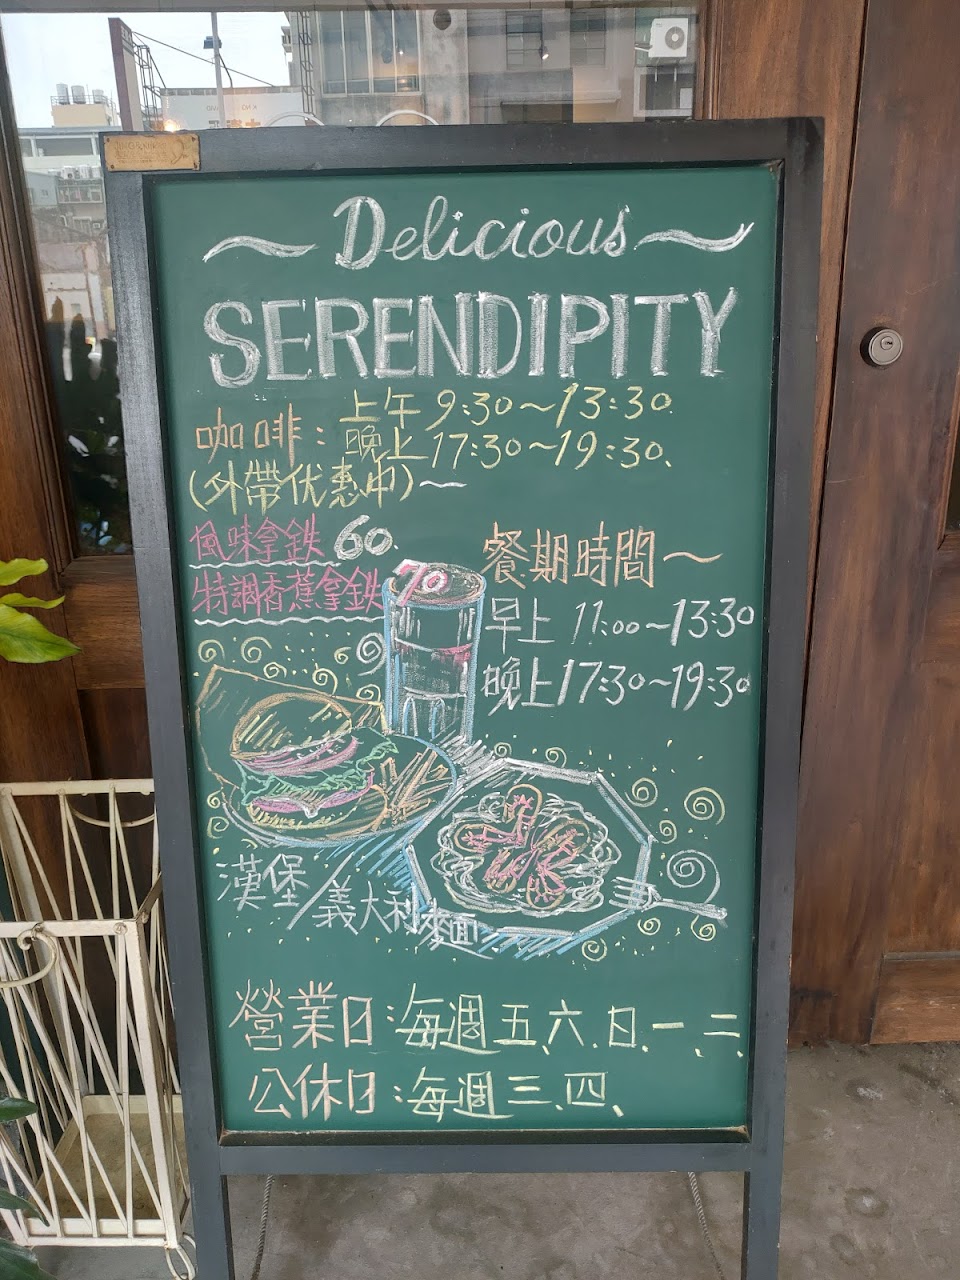 Delicious
SERENDIPITY
咖啡: 上午 9:30~13:30.
晚上17:30~19:30.
(外帶优惠中)~
風味拿鉄 60.
特調香蕉拿鉄 70
餐期時間~
早上 11:00~13:30
晚上17:30~19:30
漢堡/義大利麵
營業日:每週五、六、日、一、二、
公休日:每週三、四、